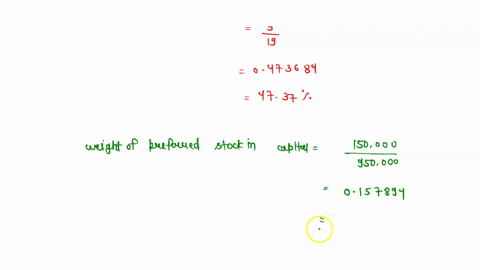 = 9/19
= 0.473684
= 47.37 %
weight of preferred stock in capital = 150,000/950,000
= 0.157894
=